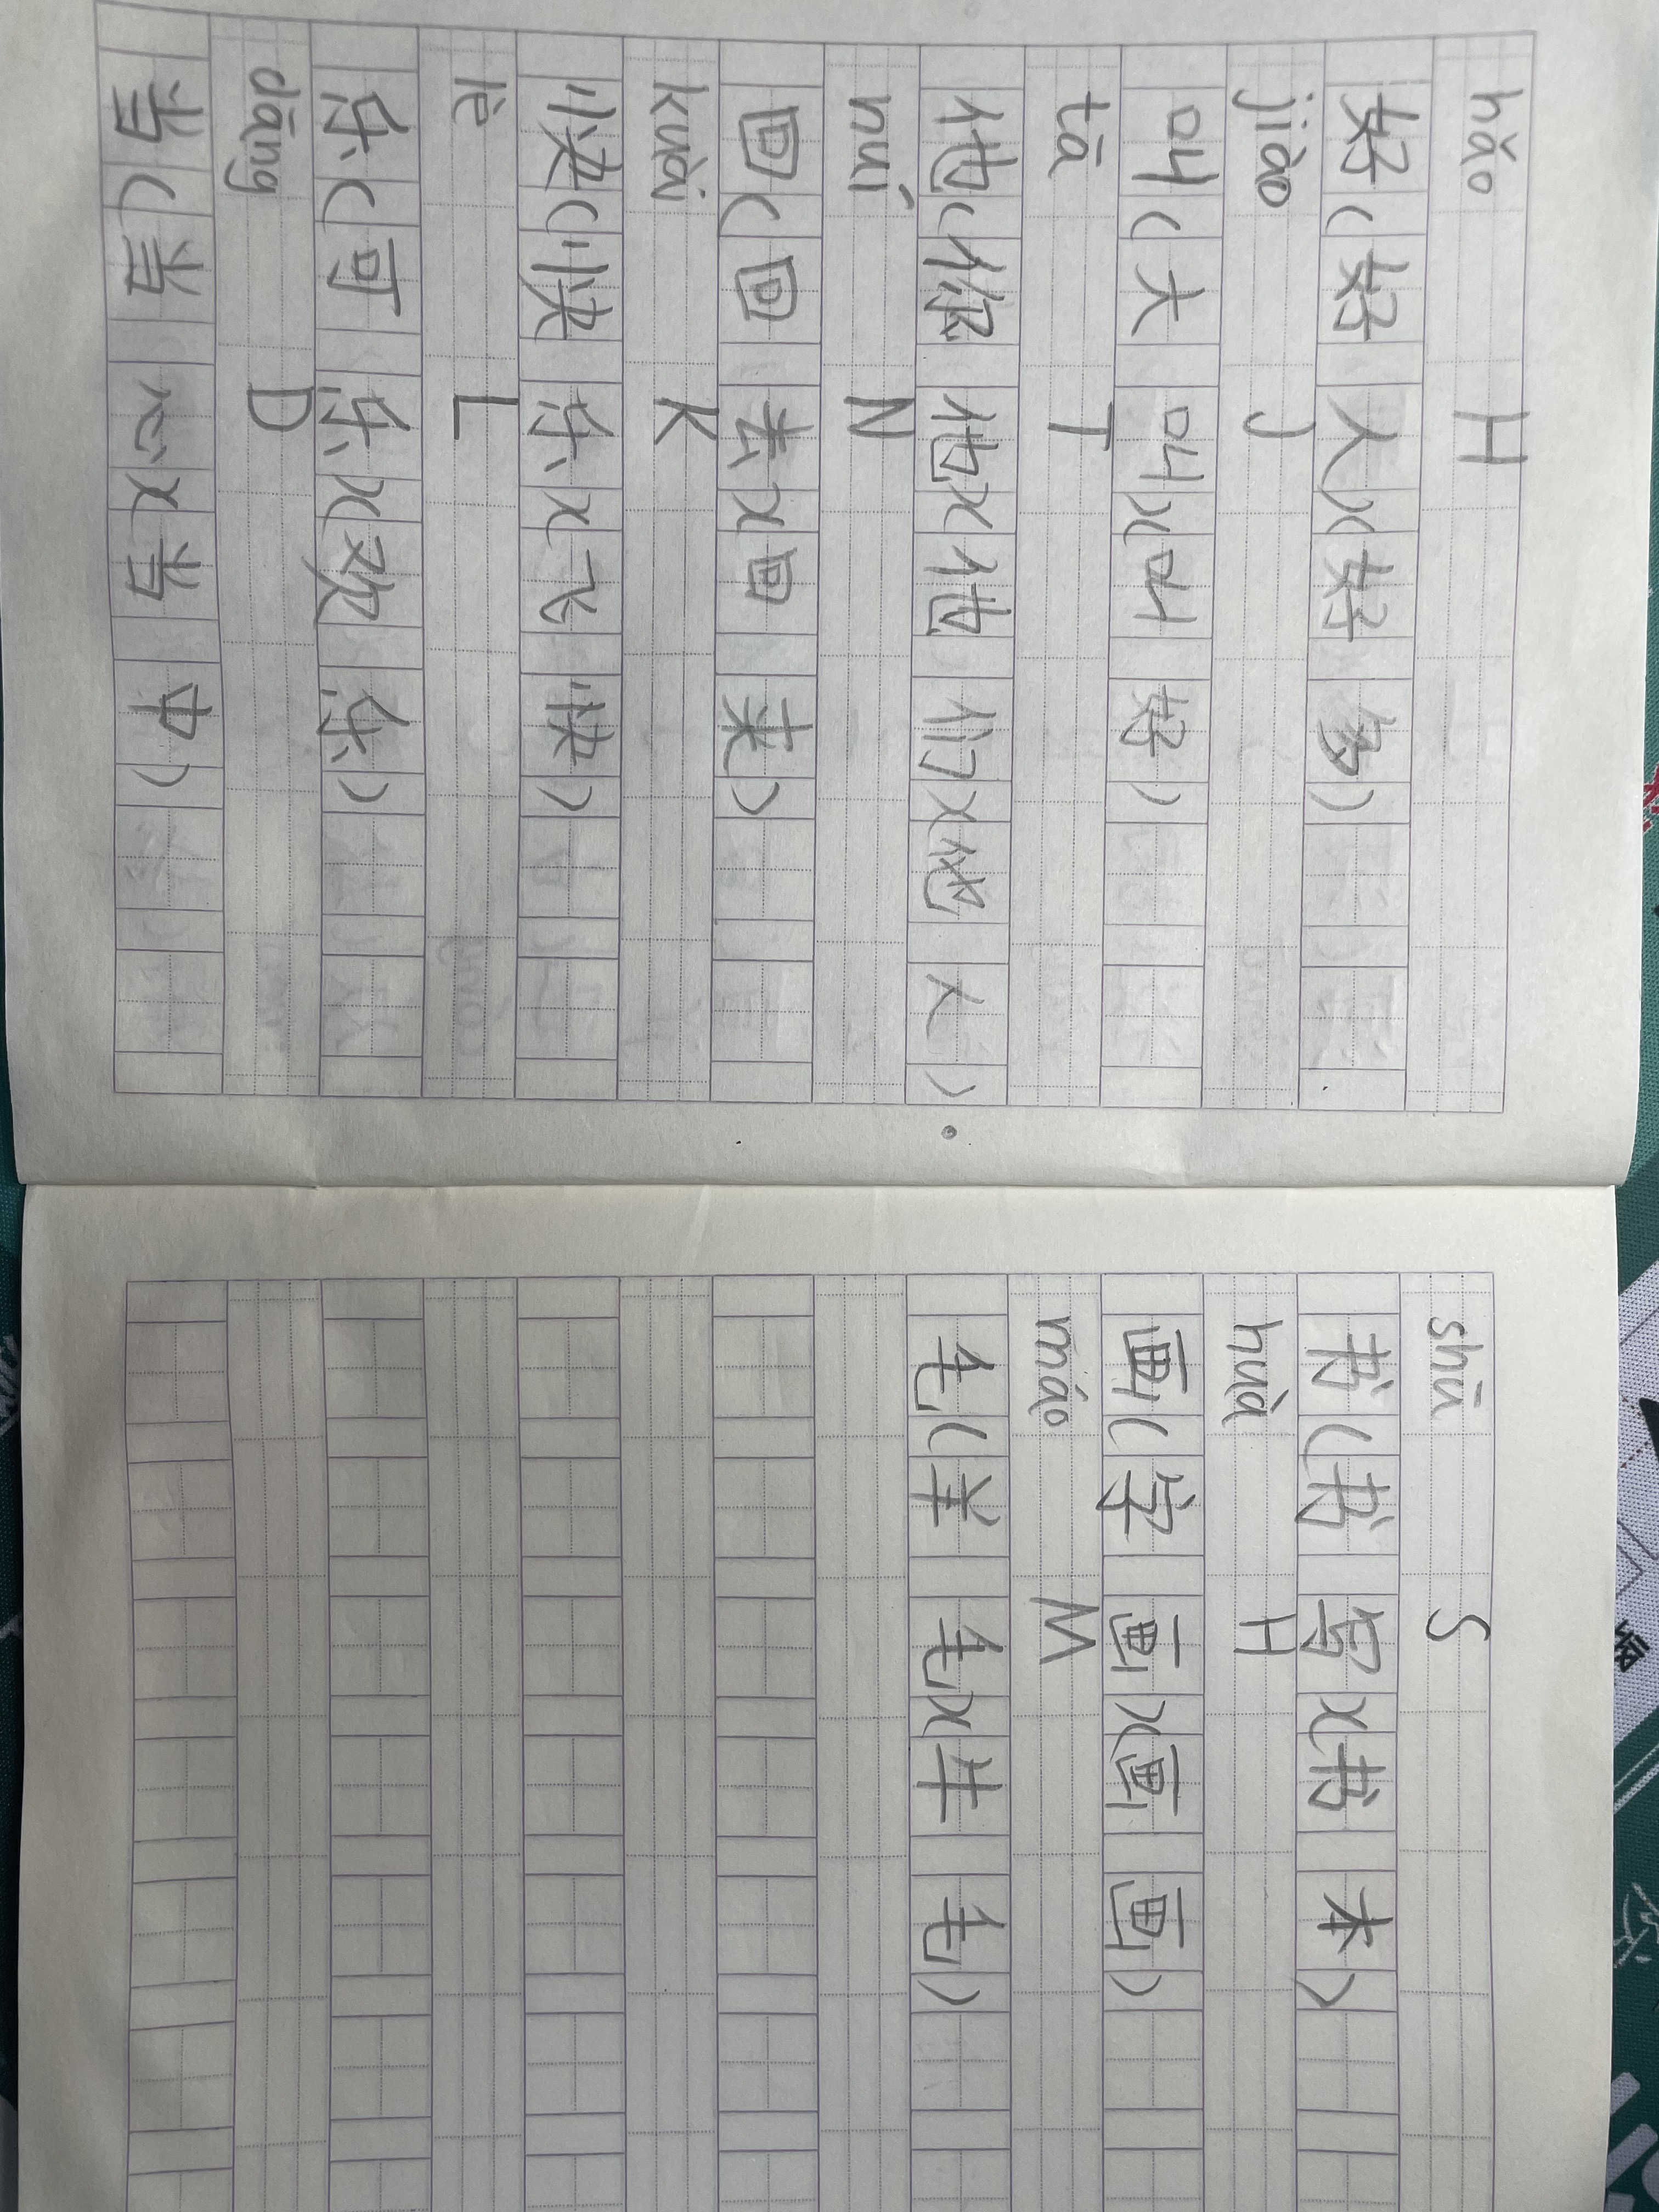 hǎo H
好(好人)(好多)
jiào J
叫(大叫)(叫好)
tā T
他(你他)(他们)(他人)
nuí N
回(回去)(回来)
kuài K
快(快乐)(飞快)
lè L
乐(可乐)(欢乐)
dāng D
当(当心)(当中)
shū S
书(书写)(书本)
huà H
画(字画)(画画)
máo M
毛(羊毛)(牛毛)